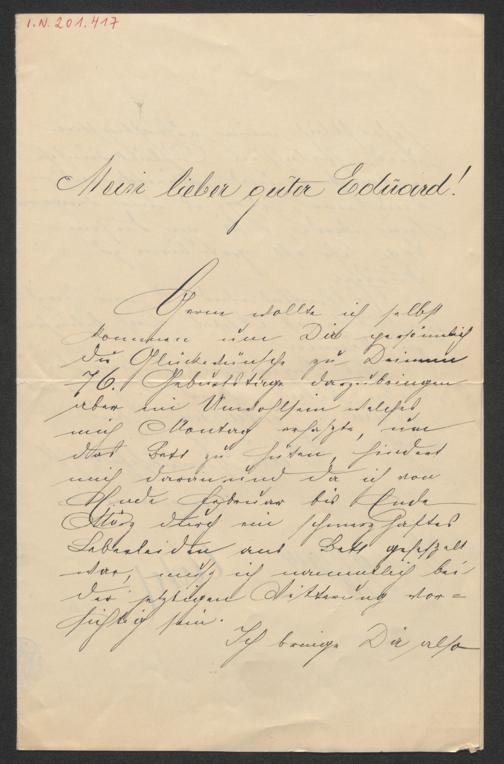 I.N. 201.417
Mein lieber guter Eduard!
Gerne wollte ich selbst
kommen um Dir persönlich
die Glückwünsche zu Deinem
76. Geburtstage darzubringen
aber ein Unwohlsein welches
mich Montag erfaßte, um
das Bett zu hüten, hindert
mich daran und da ich von
Ende Februar bis Ende
März durch ein schmerzhaftes
Leberleiden ans Bett gefesselt
war, muß ich namentlich bei
der jetzigen Witterung vor=
sichtig sein.
Ich bringe Dir also